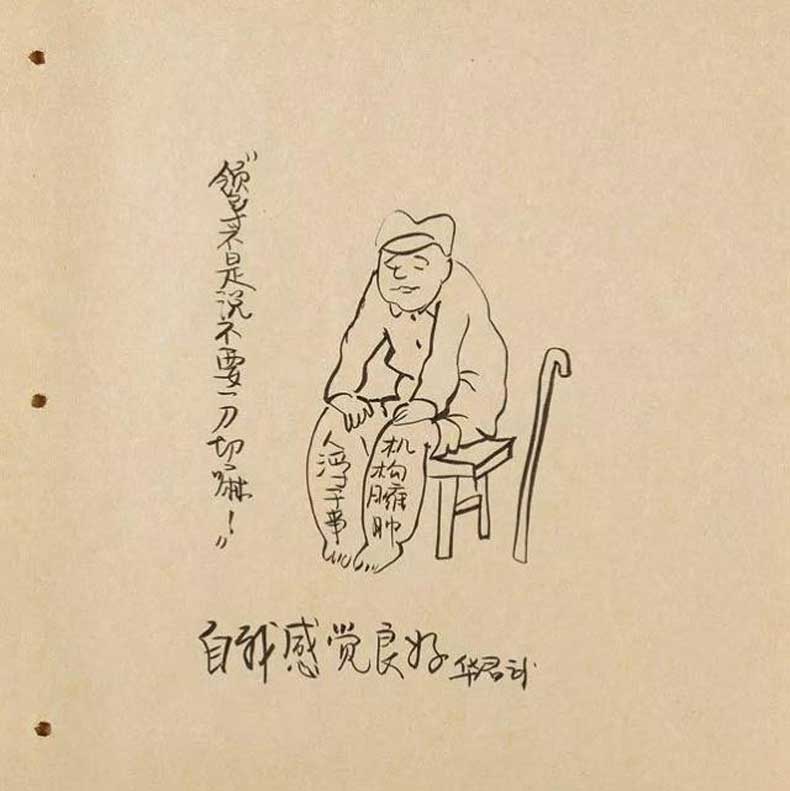 “领导不是说不要一刀切嘛！”
机构臃肿
人浮于事
自我感觉良好
华君武